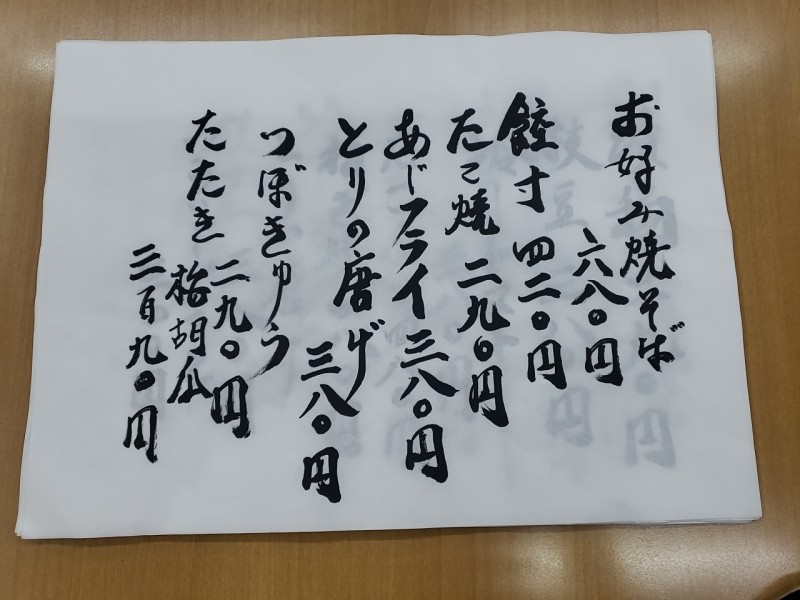 お好み焼そば
六八〇円
餃寸 四二〇円
たこ焼 二九〇円
あじフライ 三八〇円
とりの唐げ
三八〇円
つぼきゅう
二九〇円
たたき梅胡瓜
三百九〇円